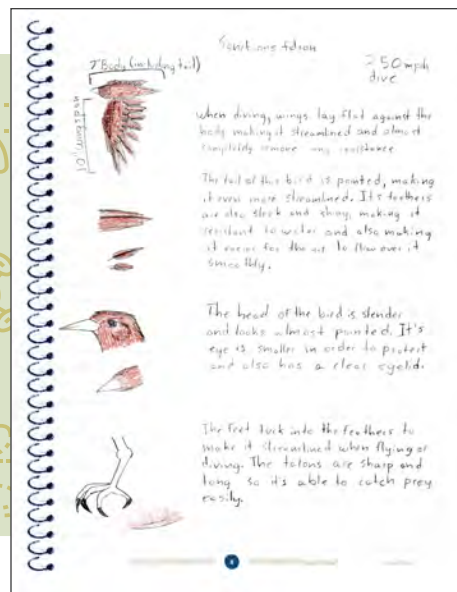 falcon
2' Body (including tail)
250mph
dive
10' wingspan
When diving, wings lay flat against the
body making it streamlined and almost
completely remove any resistance
The tail of this bird is pointed, making
it even more streamlined. It's feathers
are also sleek and shiny, making it
resistant to water and also making
it easier for the air to flow over it
smoothly.
The head of the bird is slender
and looks almost pointed. It's
eye is smaller in order to protect
and also has a clear eyelid.
The feet tuck into the feathers to
make it streamlined when flying or
diving. The talons are sharp and
long so it's able to catch prey
easily.